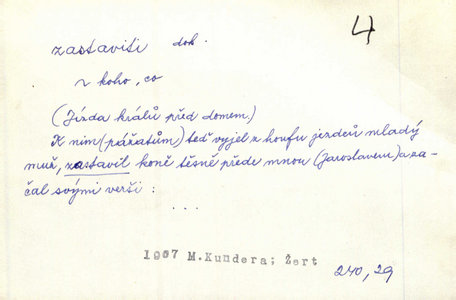 4
zastaviti dok.
~ koho, co
(Jízda králů před domem.)
K nim (pážatům) teď vyjel z houfu jezdců mladý
muž, zastavil koně těsně přede mnou (Jaroslavem) a za-
čal svými verši :
...
1967 M.Kundera; Žert
240,29